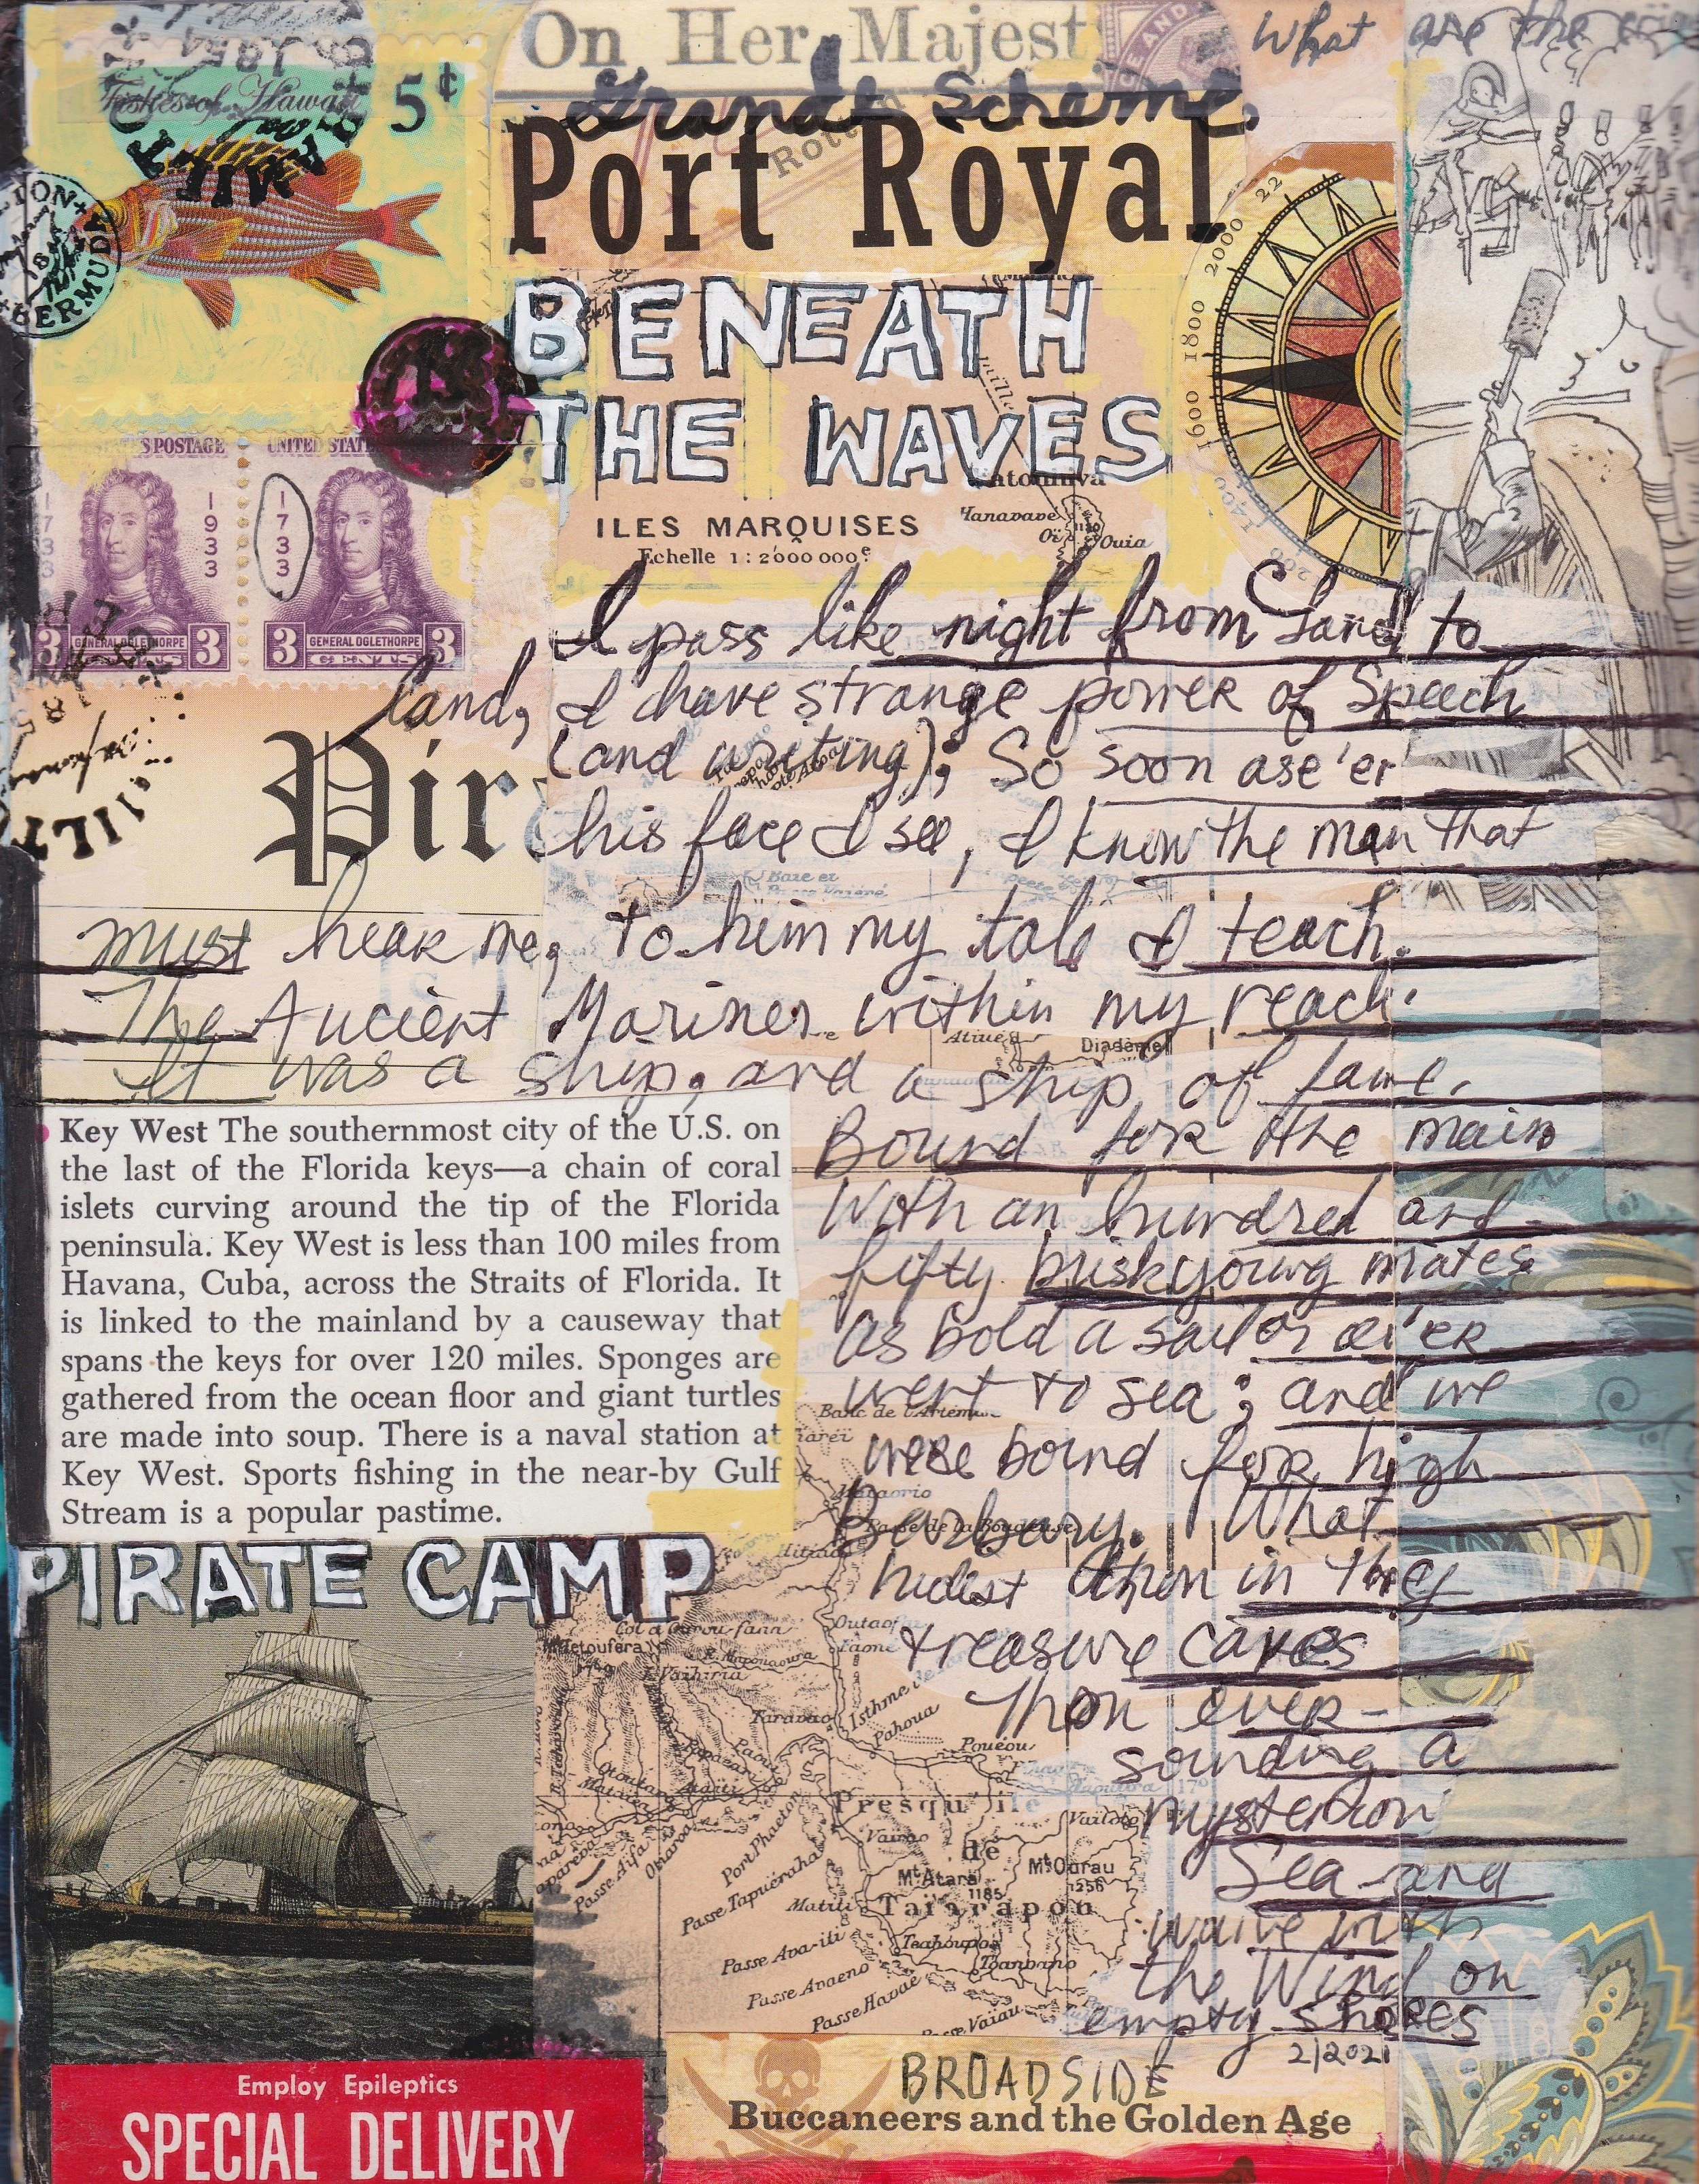 On Her Majest
What are the
Grande Scheme,
Port Royal
Fishes of Hawaii
5¢
BERMUDA
BENEATH
THE WAVES
2000
1800
1600
1400
ILES MARQUISES
Echelle 1:2000000e
Hanavave
Ouia
S POSTAGE
UNITED STATE
1733
1933
1733
3 GENERAL OGLETHORPE 3
3 GENERAL OGLETHORPE 3
CENTS
I pass like night from land to
land, I have strange power of Speech
(and writing); So soon as e'er
Pir
his face I see, I know the man that
must hear me, to him my tale I teach.
The Ancient Mariner within my reach.
It was a ship, and a ship of fame,
Bound for the main
With an hundred and
fifty brisk young mates
as bold a sailor as e'er
went to sea; and we
were bound for high
Barbary. What
hidest thou in thy
treasure caves
Thou ever-
sounding
a
Sea and
wave with
the Wind on
empty shores
2/2021
Key West The southernmost city of the U.S. on
the last of the Florida keys—a chain of coral
islets curving around the tip of the Florida
peninsula. Key West is less than 100 miles from
Havana, Cuba, across the Straits of Florida. It
is linked to the mainland by a causeway that
spans the keys for over 120 miles. Sponges are
gathered from the ocean floor and giant turtles
are made into soup. There is a naval station at
Key West. Sports fishing in the near-by Gulf
Stream is a popular pastime.
PIRATE CAMP
Diadème
Taravao
Isthme
Pahoua
Pouéou
Presqu'ile
de
Taiarapou
Vairao
Mt Atara
1185
Mt Oarau
1256
Matiti
Port Phaeton
Passe Tapuëraha
Passe Ava-iti
Passe Avaeno
Passe Havae
Teahoupoo
Employ Epileptics
SPECIAL DELIVERY
BROADSIDE
Buccaneers and the Golden Age